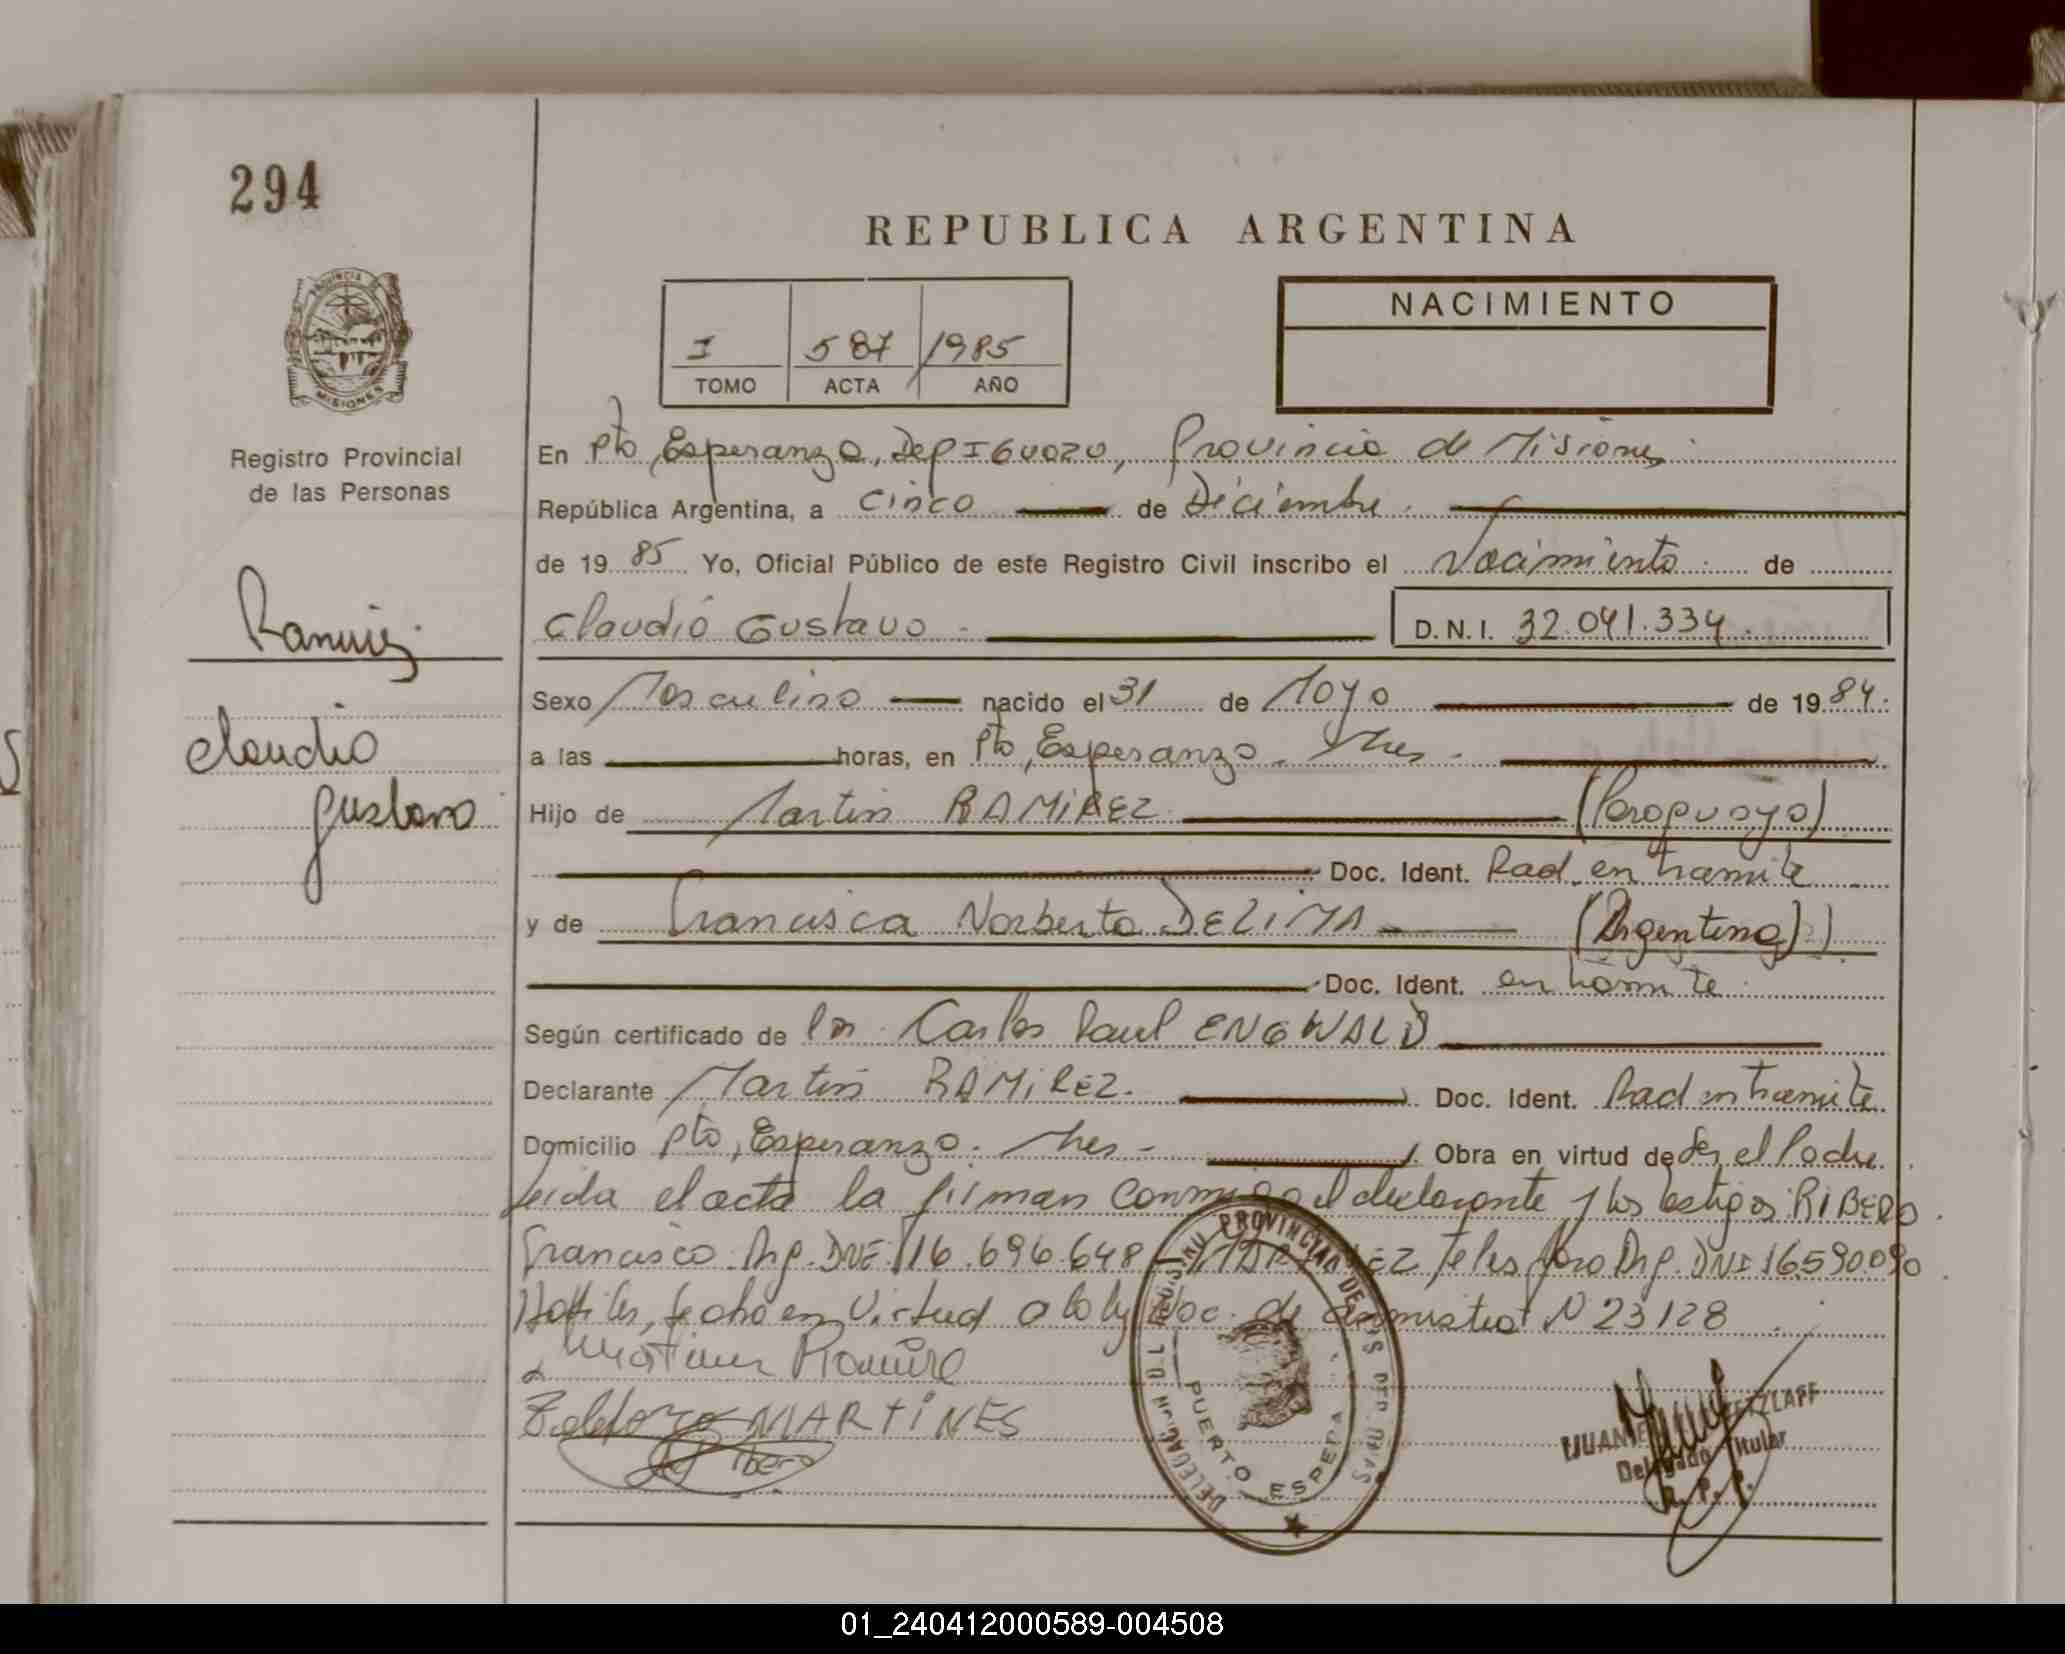 294
REPUBLICA ARGENTINA
PROVINCIA DE
MISIONES
I 587 1985
TOMO ACTA AÑO
NACIMIENTO
Registro Provincial
de las Personas
Ramirez
Claudio
Gustavo
En Pto, Esperanza, Dep IGUAZU, Provincia de Misiones
República Argentina, a cinco de Diciembre.
de 1985 Yo, Oficial Público de este Registro Civil inscribo el Nacimiento de
Claudio Gustavo D.N.I. 32.041.334
Sexo Masculino nacido el 31 de Mayo de 1984.
a las horas, en Pto, Esperanza. Mnes -
Hijo de Martin RAMIREZ (Paraguayo)
Doc. Ident. Rad. en tramite
y de Francisca Norberta DELIMA (Argentina)
Doc. Ident. en tramite
Según certificado de Dr. Carlos Raul ENGWALD
Declarante Martin RAMIREZ. Doc. Ident. Rad en tramite
Domicilio Pto, Esperanza. Mnes - Obra en virtud de Ser el Padre
leida el acta la firman conmigo el declarante y los testigos RIBERO
Francisco Arg. DNI 16.696.648 Telesforo Arg. DNI 16.590.090
fecha en Virtud a la ley Nac. de amnistia N 23128
Martinez Ramire
MARTINES
Ribero
PROVINCIAL DE LAS PERSONAS
PUERTO ESPERA
JUAN RETZLAFF
Delegado Titular
R. P. P.
01_240412000589-004508